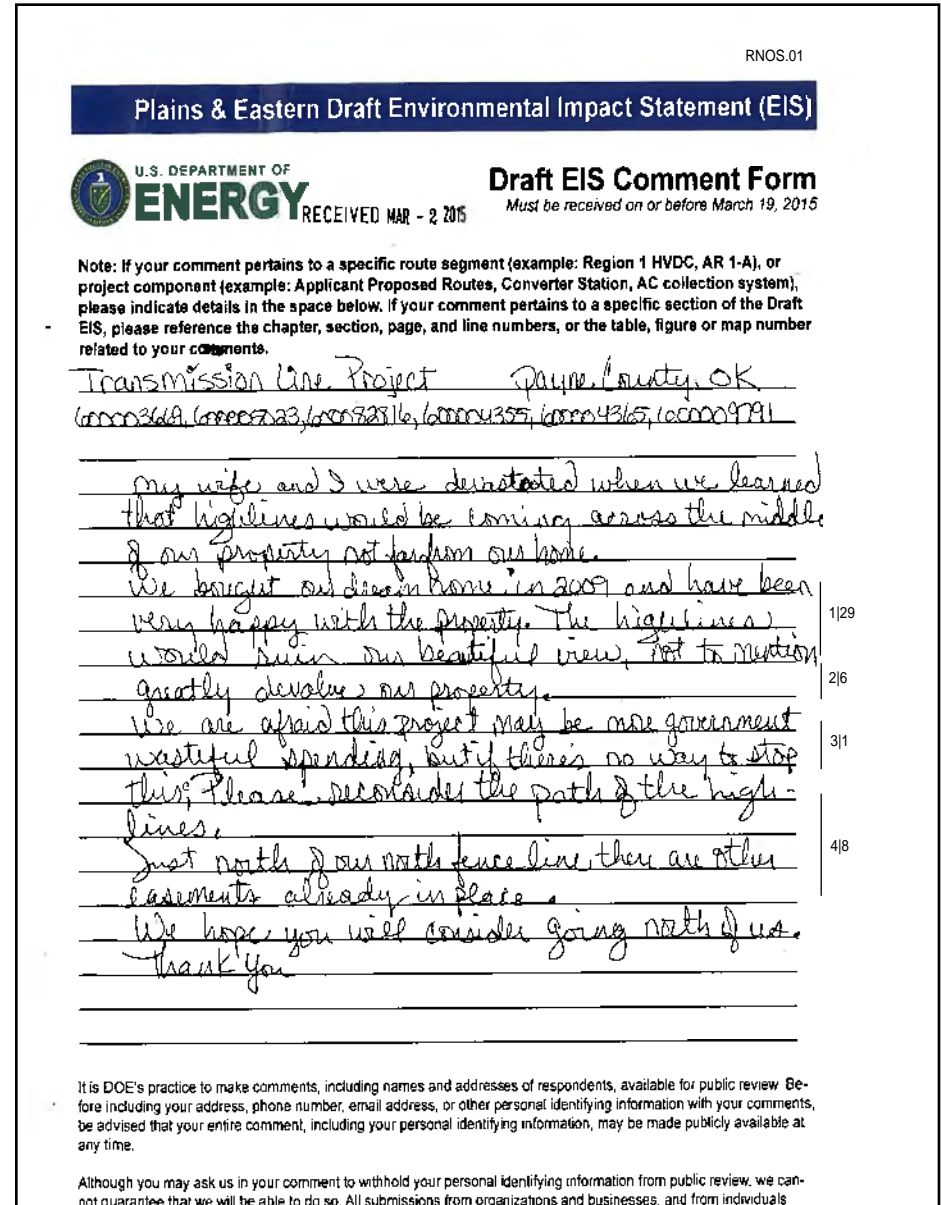 RNOS.01
Plains & Eastern Draft Environmental Impact Statement (EIS)
U.S. DEPARTMENT OF
ENERGY
RECEIVED MAR - 2 2015
Draft EIS Comment Form
Must be received on or before March 19, 2015
Note: If your comment pertains to a specific route segment (example: Region 1 HVDC, AR 1-A), or
project component (example: Applicant Proposed Routes, Converter Station, AC collection system),
please indicate details in the space below. If your comment pertains to a specific section of the Draft
EIS, please reference the chapter, section, page, and line numbers, or the table, figure or map number
related to your comments.
Transmission Line Project Payne County, OK
My wife and I were devastated when we learned
that highlines would be coming across the middle
of our property not far from our home.
We bought our dream home in 2009 and have been
very happy with the property. The highlines
1|29
would ruin our beautiful view, not to mention
greatly devalue our property.
2|6
We are afraid this project may be more government
wasteful spending, but if there's no way to stop
3|1
this, Please reconsider the path of the high-
lines.
Just north of our north fence line, they are other
4|8
easements already in place.
We hope you will consider going north of us.
Thank You
It is DOE's practice to make comments, including names and addresses of respondents, available for public review. Be-
fore including your address, phone number, email address, or other personal identifying information with your comments,
be advised that your entire comment, including your personal identifying information, may be made publicly available at
any time.
Although you may ask us in your comment to withhold your personal identifying information from public review, we can-
not guarantee that we will be able to do so. All submissions from organizations and businesses, and from individuals